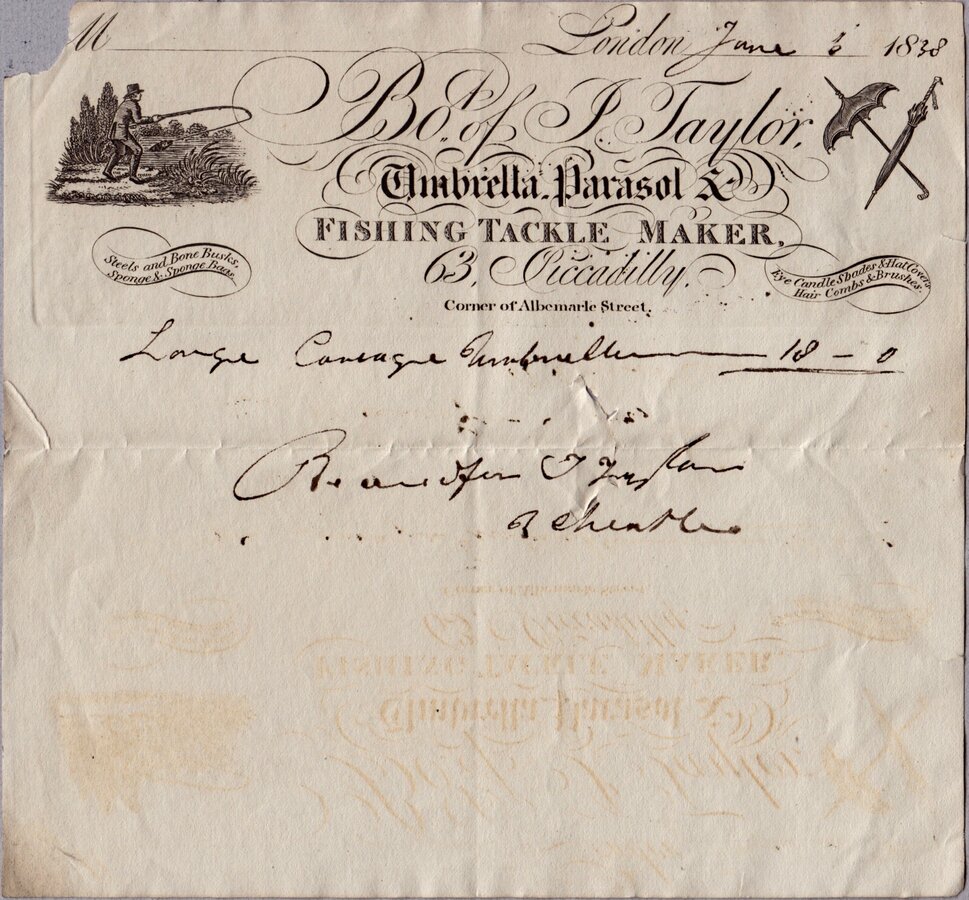 M London June 1838
Bot. of J. Taylor,
Umbrella, Parasol &
FISHING TACKLE MAKER,
63, Piccadilly.
Corner of Albemarle Street.
Steels and Bone Busks,
Sponge & Sponge Bags.
Eye Candle Shades & Hat Covers
Hair Combs & Brushes.
Large Carriage Umbrella 18 - 0
J Taylor